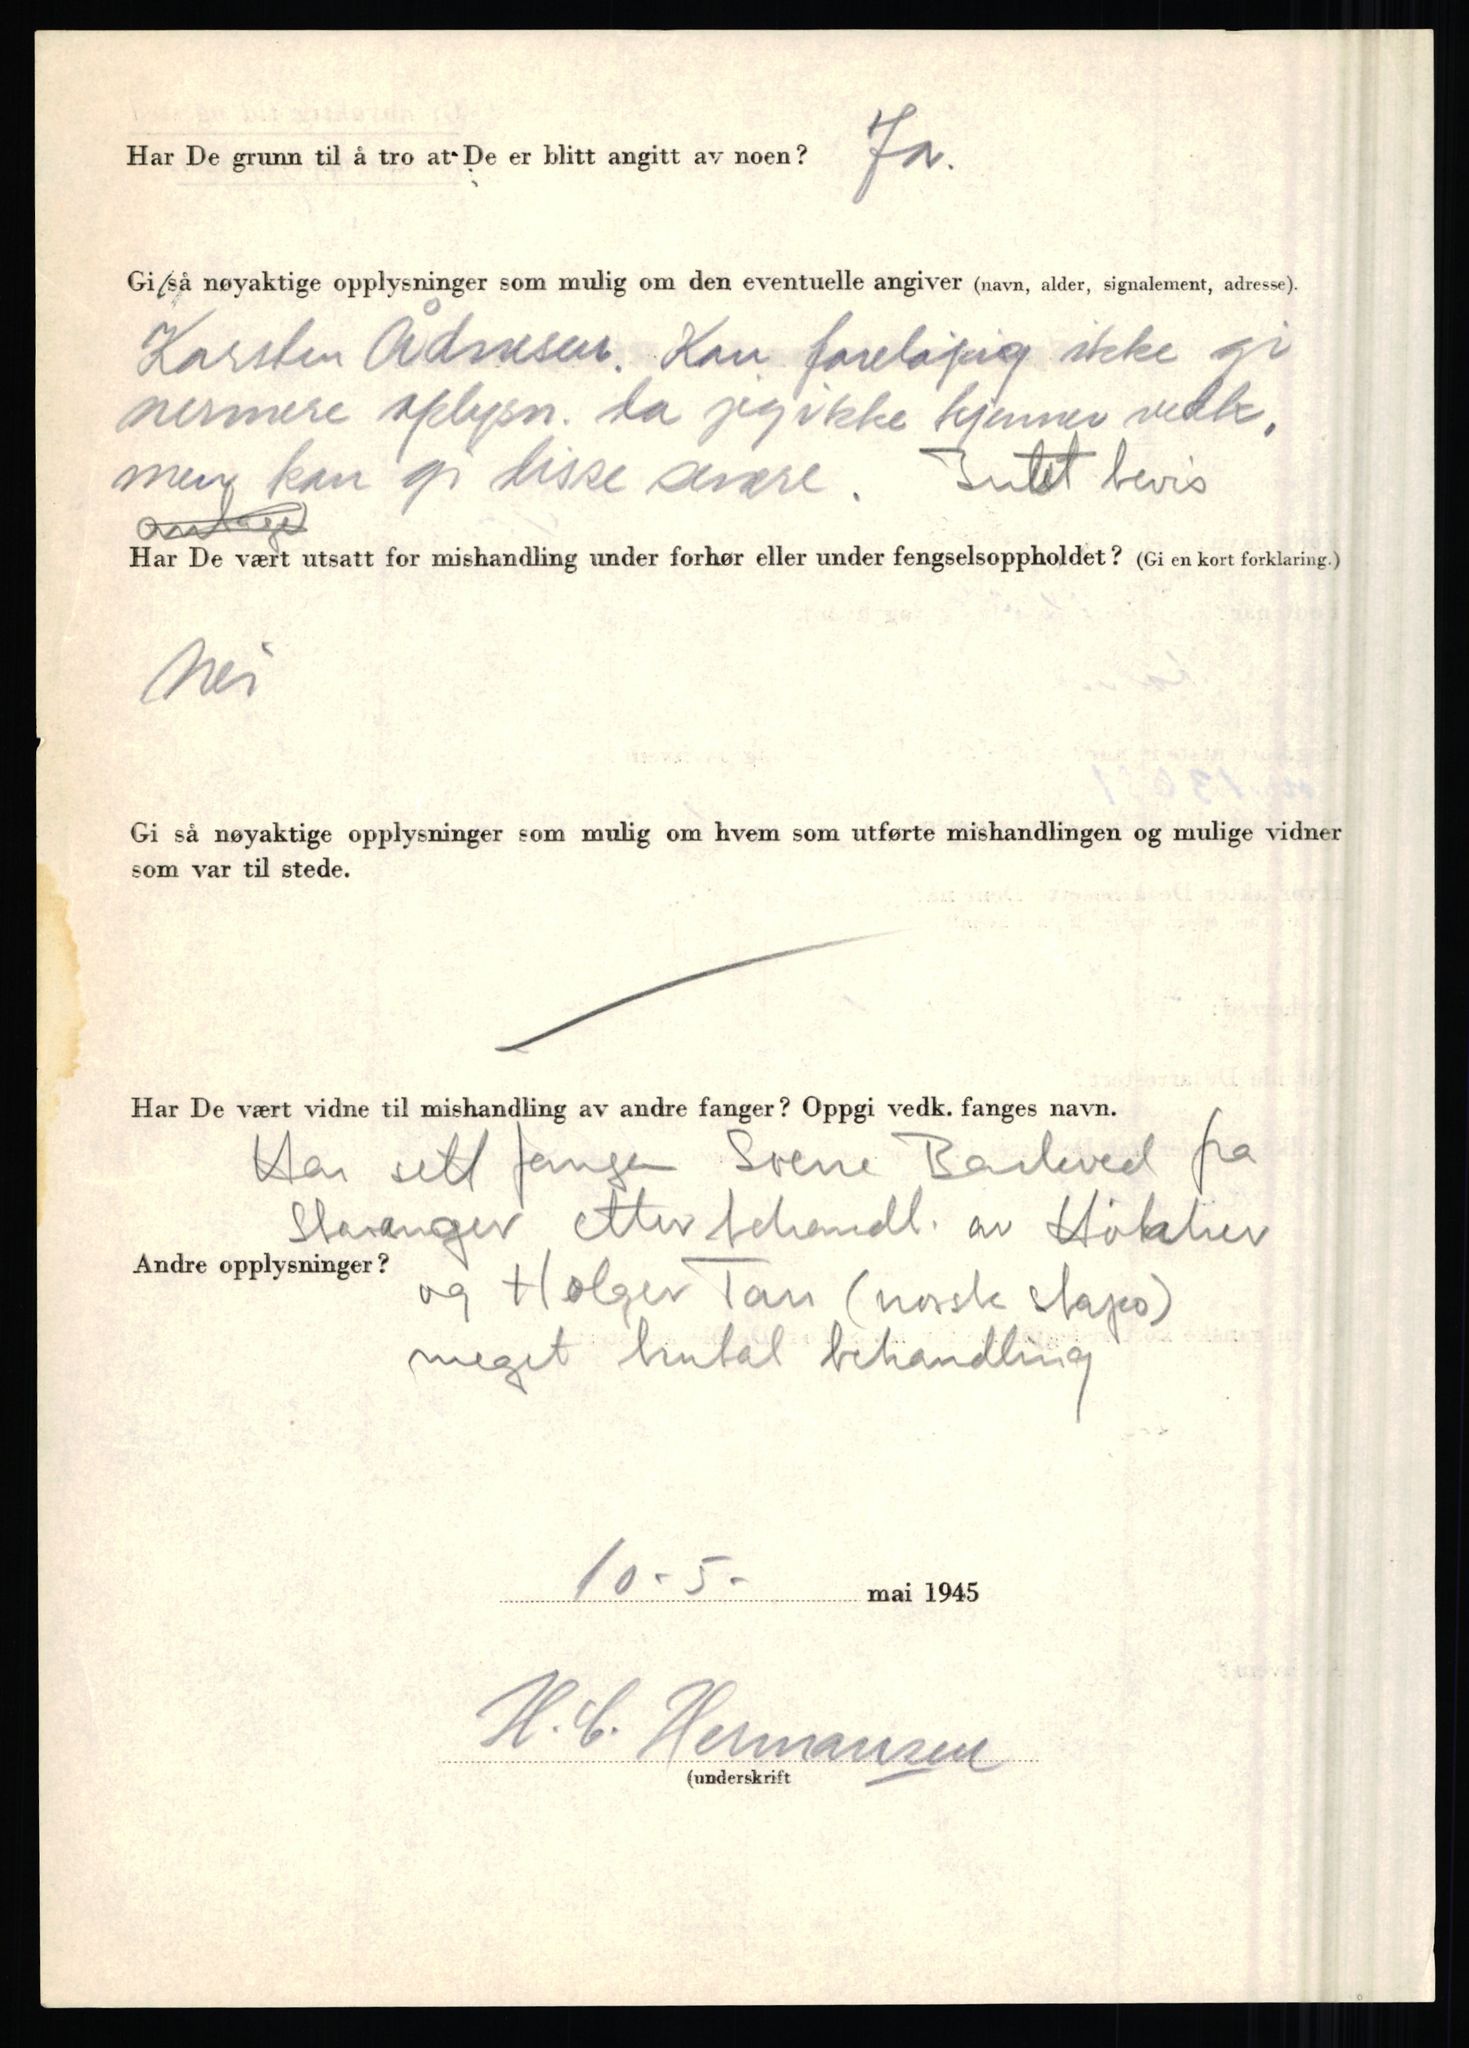 Har De grunn til å tro at De er blitt angitt av noen? Ja.
Gi så nøyaktige opplysninger som mulig om den eventuelle angiver (navn, alder, signalement, adresse).
Karsten Kan foreløpig ikke gi
nermere oplysn. da jeg ikke kjenner vedk,
men kan gi disse senere. Intet bevis
Har De vært utsatt for mishandling under forhør eller under fengselsoppholdet? (Gi en kort forklaring.)
Nei
Gi så nøyaktige opplysninger som mulig om hvem som utførte mishandlingen og mulige vidner
som var til stede.
Har De vært vidne til mishandling av andre fanger? Oppgi vedk. fanges navn.
Har sett fangen fra
Stavanger etter behandl. av
Andre opplysninger?
og Holger Tou (norsk stapo)
meget brutal behandling
10-5- mai 1945
H. C. Hermansen
(underskrift